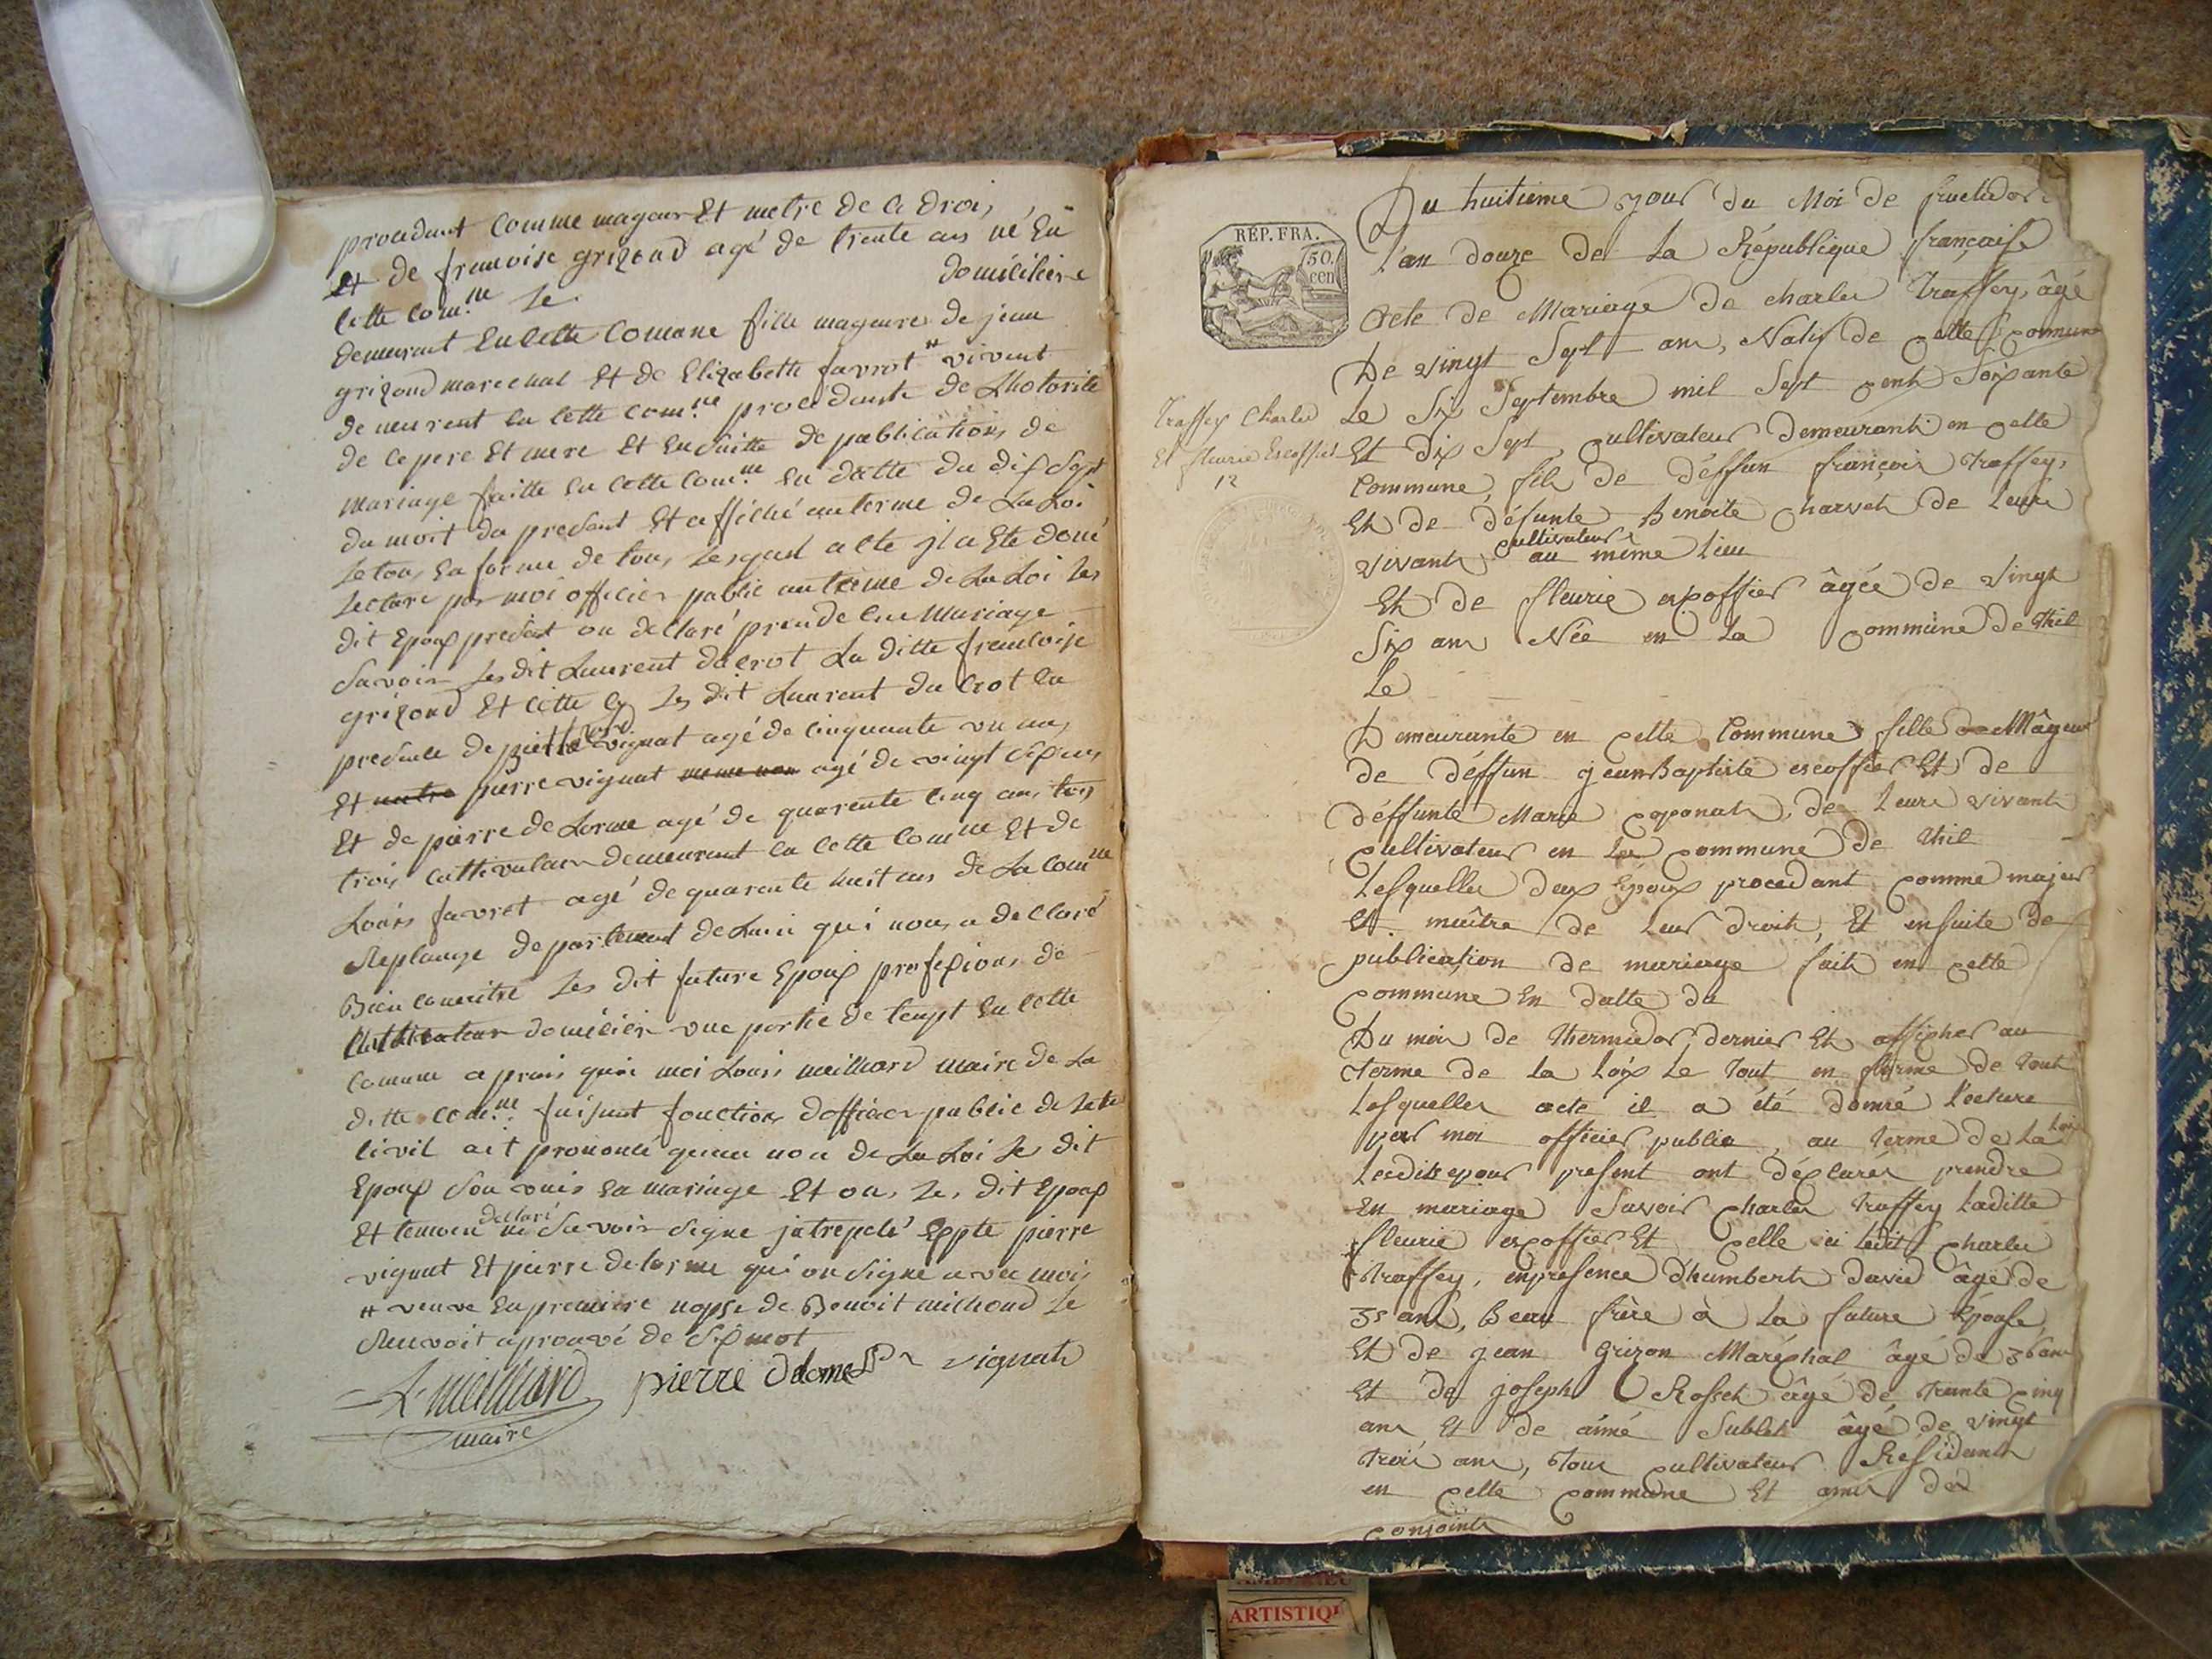 procedant Comme mageur Et metre de ce droi,
Et de francoise grizond agé de trente ans né En
Cette com.ne Le domiciliere
demeurant En cette Comune fille mageure de jean
grizond marechal Et de Elizabette favrot # vivent
demeurent en cette com.ne procedante de Lhotorité
de ce pere Et mere Et En suitte de publication, de
mariage faitte En cette com.ne En datte du dix Sept
du moit du presant Et affiché au terme de La Loi
Le tou, En forme de tou, Lesquel acte jl a Ete doné
Lecture par moi officier public au terme de La Loi Les
dit Epoux presect on declaré prende En Mariage
Savoir Les dit Laurent ducrot La ditte francoise
grizond Et cette cy Les dit Laurent du Crot En
presence de pierre vignat agé de Cinquante un ans
Et pierre vignat agé de vingt
Et de pierre de Lorme agé de quarente cinq an, tous
trois Cultivateur demeurent En cette Comne Et de
Louis favret agé de quarente huit ans de La Comne
Replange departement de Lain qui nous a declaré
Bien Conneitre Les dit future Epoux profession, de
Cultivateur domicilier une partie de tempt En cette
Comune aprais quoi moi Louis meilliard maire de La
ditte com.ne faisant fonction, dofficier public de Leta
Civil ait prononcé quau non de La Loi Les dit
Epoux Son unis En mariage Et on, Les dit Epoux
Et temoin declaré ne Savoir Signe jntrepelé Eppte pierre
vignat Et pierre de Lorme qui on Signe avec moi,
# veuve En premiere nopse de Benoit milliond Le
Renvoit aprouvé de Six mot
L. meilliard pierre delorme vignat
maire
RÉP. FRA.
50.
cen
Du huitieme jour du Moi de fructidor
l'an douze de La République française
Acte de Mariage de charles Traffey, âgé
De vingt Sept ans, Natif de cette Commune
Le Six Septembre mil Sept cent Soixante
Et Dix Sept cultivateur Demeurant en cette
Commune, fils de déffun françois Traffey,
Et de défunte Benoite charvet de Leure
vivant cultivateurs au même Lieu
Et de fleurie escoffier âgée de vingt
Six ans Née en La commune de Thil
Le
Demeurante en cette Commune fille Mâgeur
de déffun jean Baptiste escoffier Et de
déffunte Marie coponat, de Leure vivant
cultivateur en La commune de Thil
Lesquelles deux Epoux procedant comme majeur
Et maître de Leur droit, Et ensuite de
publication de mariage fait en cette
commune En datte du
Du mois de thermidor dernier Et afficher au
terme de La Loix Le Tout en forme de Tout
Lesquelles acte il a été donné Lecture
par moi officier public au terme de La Loix
Lesdits epoux present ont déclarés prendre
En mariage Savoir charles Traffey Laditte
fleurie escoffier Et celle ci Ledit charles
Traffey, en presence d'humbert david âgé de
35 ans, Beau frère à La future Epouse,
Et de jean Grizon Maréchal âgé de 36 ans
Et de joseph Rosset âgé de Trente cinq
ans Et de aimé Sublet âgé de vingt
Trois ans, Tous cultivateur Residant
en cette commune Et amis des
conjoints
Traffey Charles
Et fleurie Escoffier
12
ARTISTIQU